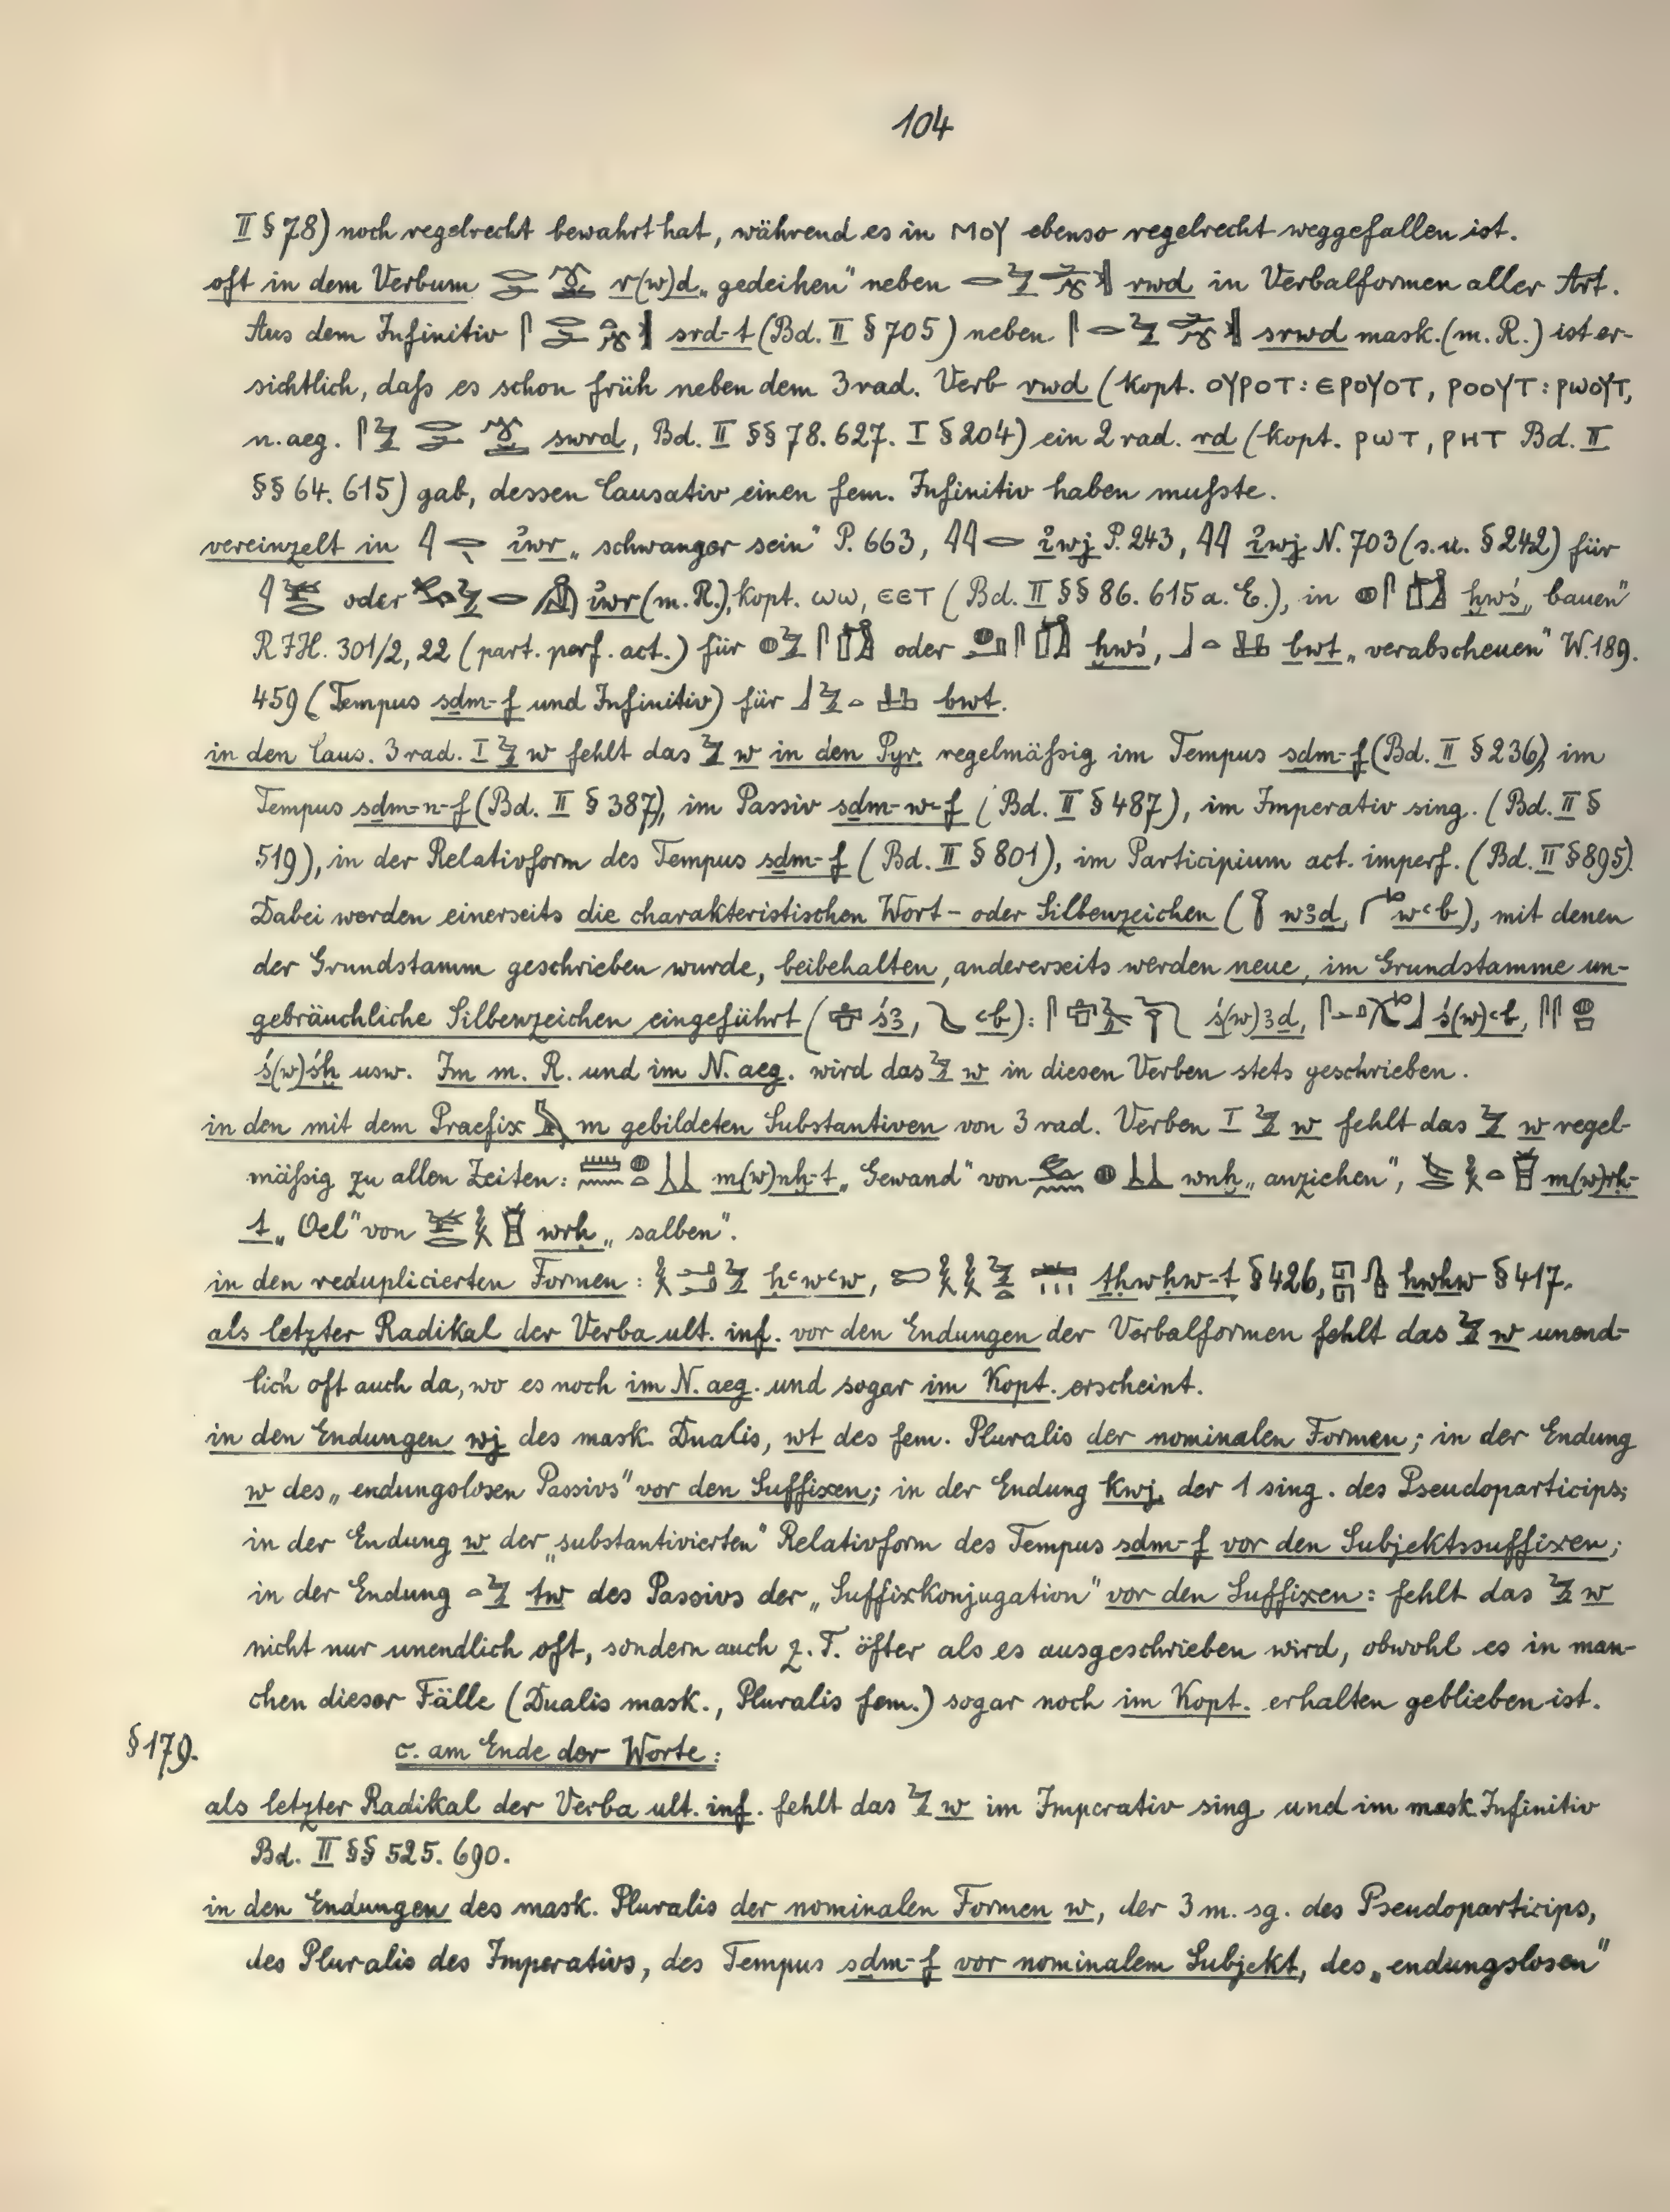 104
II § 78) noch regelrecht bewahrt hat, während es in ⲙⲟⲩ ebenso regelrecht weggefallen ist.
oft in dem Verbum r(w)d „gedeihen" neben rwd in Verbalformen aller Art.
Aus dem Infinitiv srd-t (Bd. II § 705) neben srwd mask. (m. R.) ist er-
sichtlich, daſs es schon früh neben dem 3rad. Verb rwd (kopt. ⲟⲩⲣⲟⲧ : ⲉⲣⲟⲩⲟⲧ, ⲣⲟⲟⲩⲧ : ⲣⲱⲟⲩⲧ,
n. aeg. swrd, Bd. II §§ 78. 627. I § 204) ein 2 rad. rd (kopt. ⲣⲱⲧ, ⲣⲏⲧ Bd. II
§§ 64. 615) gab, dessen Causativ einen fem. Infinitiv haben muſste.
vereinzelt in iwr „schwanger sein" P. 663, iwj P. 243, iwj N. 703 (s. u. § 242) für
oder iwr (m. R.), kopt. ⲱⲱ, ⲉⲉⲧ (Bd. II §§ 86. 615 a. E.), in ḫwś „bauen"
RIH. 301/2, 22 (part. perf. act.) für oder ḫwś, bwt „verabscheuen" W. 189.
459 (Tempus sḏm-f und Infinitiv) für bwt.
in den Caus. 3 rad. I w fehlt das w in den Pyr. regelmäſsig im Tempus sḏm-f (Bd. II § 236), im
Tempus sḏm-n-f (Bd. II § 387), im Passiv sḏm-w-f (Bd. II § 487), im Imperativ sing. (Bd. II §
519), in der Relativform des Tempus sḏm-f (Bd. II § 801), im Participium act. imperf. (Bd. II § 895).
Dabei werden einerseits die charakteristischen Wort- oder Silbenzeichen ( wꜣḏ, wꜥb), mit denen
der Grundstamm geschrieben wurde, beibehalten, andererseits werden neue, im Grundstamme un-
gebräuchliche Silbenzeichen eingeführt ( śꜣ, ꜥb): ś(w)ꜣḏ, ś(w)ꜥb,
ś(w)śḫ usw. Im m. R. und im N. aeg. wird das w in diesen Verben stets geschrieben.
in den mit dem Praefix m gebildeten Substantiven von 3 rad. Verben I w fehlt das w regel-
mäſsig zu allen Zeiten: m(w)nḫ-t „Gewand" von wnḫ „anziehen", m(w)rḥ-
t „Oel" von wrḥ „salben".
in den reduplicierten Formen: ḥꜥwꜥw, tḥwḥw-t § 426, hwhw § 417.
als letzter Radikal der Verba ult. inf. vor den Endungen der Verbalformen fehlt das w unend-
lich oft auch da, wo es noch im N. aeg. und sogar im Kopt. erscheint.
in den Endungen wj des mask. Dualis, wt des fem. Pluralis der nominalen Formen; in der Endung
w des „endungslosen Passivs" vor den Suffixen; in der Endung kwj der 1 sing. des Pseudoparticips;
in der Endung w der „substantivierten" Relativform des Tempus sḏm-f vor den Subjektssuffixen;
in der Endung tw des Passivs der „Suffixkonjugation" vor den Suffixen: fehlt das w
nicht nur unendlich oft, sondern auch z. T. öfter als es ausgeschrieben wird, obwohl es in man-
chen dieser Fälle (Dualis mask., Pluralis fem.) sogar noch im Kopt. erhalten geblieben ist.
§ 179. c. am Ende der Worte:
als letzter Radikal der Verba ult. inf. fehlt das w im Imperativ sing. und im mask. Infinitiv
Bd. II §§ 525. 690.
in den Endungen des mask. Pluralis der nominalen Formen w, der 3 m. sg. des Pseudoparticips,
des Pluralis des Imperativs, des Tempus sḏm-f vor nominalem Subjekt, des „endungslosen"